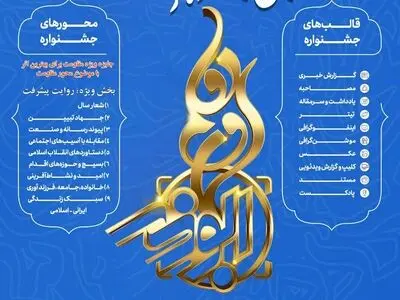 قالب‌های
جشنواره
گزارش خبری
مصاحبه
یادداشت و سرمقاله
تیتر
اینفوگرافی
موشن‌گرافی
عکس
کلیپ و گزارش ویدئویی
مستند
پادکست
محورهای
جشنواره
جایزه ویژه مقاومت برای بهترین اثر
با موضوع محور مقاومت
بخش ویژه: روایت پیشرفت
۱) شعار سال
۲) جهاد تبیین
۳) پیوند رسانه و صنعت
۴) مقابله با آسیب‌های اجتماعی
۵) دستاوردهای انقلاب اسلامی
۶) بسیج و حوزه‌های اقدام
۷) امید و نشاط‌آفرینی
۸) خانواده، جامعه، فرزندآوری
۹) سبک زندگی
ایرانی - اسلامی
ابوذر